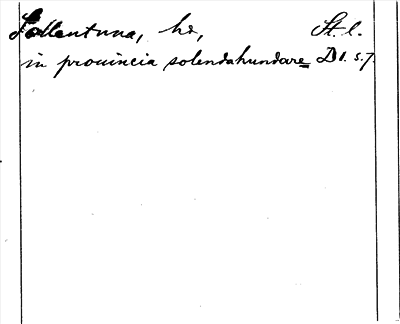 Sollentuna, hd, St. l.
in prouincia solendahundare D 1. s. 7.